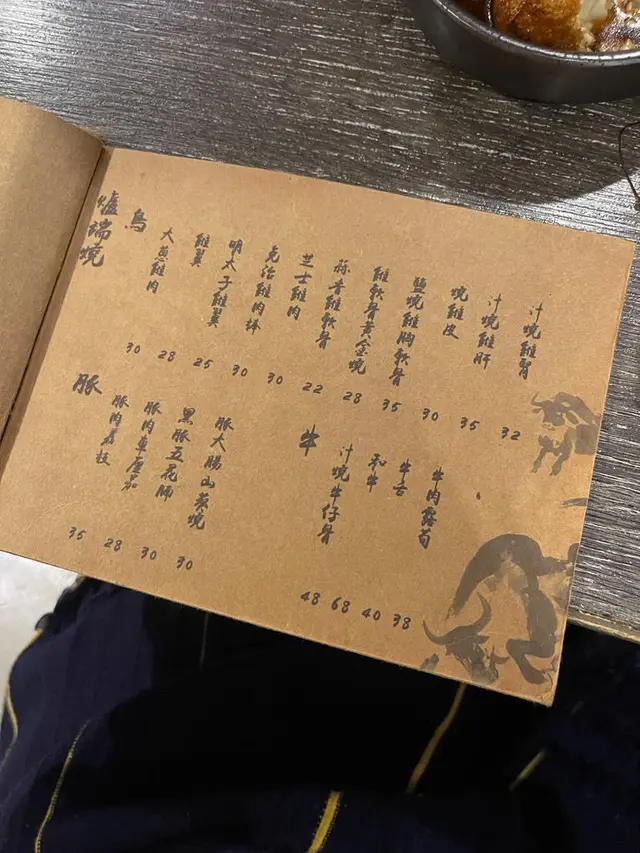 爐端燒
鳥
大葱雞肉 30
雞翼 28
明太子雞翼 25
免治雞肉棒 30
芝士雞肉 30
蒜香雞軟骨 22
雞軟骨黃金燒 28
鹽燒雞胸軟骨 35
燒雞皮 30
汁燒雞肝 35
汁燒雞腎 32
豚
豚肉荔枝 35
豚肉車厘茄 28
黑豚五花腩 30
豚大腸山葵燒 30
牛
汁燒牛仔骨 48
和牛 68
牛舌 40
牛肉露荀 38